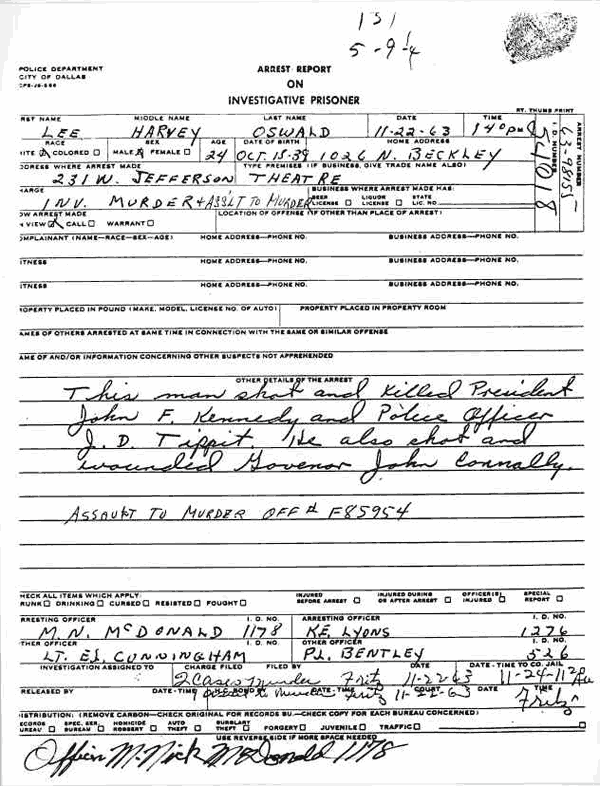 131
5-9-4
POLICE DEPARTMENT
CITY OF DALLAS
ARREST REPORT
ON
INVESTIGATIVE PRISONER
RT. THUMB PRINT
RST NAME MIDDLE NAME LAST NAME DATE TIME
LEE HARVEY OSWALD 11-22-63 1 40 pm
RACE SEX AGE DATE OF BIRTH HOME ADDRESS
ITE COLORED MALE FEMALE 24 OCT. 15-39 1026 N. BECKLEY
DDRESS WHERE ARREST MADE TYPE PREMISES (IF BUSINESS, GIVE TRADE NAME ALSO)
231 W. JEFFERSON THEATRE
HARGE BUSINESS WHERE ARREST MADE HAS:
INV. MURDER + ASSLT TO MURDER BEER LICENSE LIQUOR LICENSE STATE LIC. NO.
OW ARREST MADE LOCATION OF OFFENSE (IF OTHER THAN PLACE OF ARREST)
N VIEW CALL WARRANT
I. D. NUMBER
54018
ARREST NUMBER
63-98155
OMPLAINANT (NAME—RACE—SEX—AGE) HOME ADDRESS—PHONE NO. BUSINESS ADDRESS—PHONE NO.
ITNESS HOME ADDRESS—PHONE NO. BUSINESS ADDRESS—PHONE NO.
ITNESS HOME ADDRESS—PHONE NO. BUSINESS ADDRESS—PHONE NO.
ROPERTY PLACED IN POUND (MAKE, MODEL, LICENSE NO. OF AUTO) PROPERTY PLACED IN PROPERTY ROOM
AMES OF OTHERS ARRESTED AT SAME TIME IN CONNECTION WITH THE SAME OR SIMILAR OFFENSE
AME OF AND/OR INFORMATION CONCERNING OTHER SUSPECTS NOT APPREHENDED
OTHER DETAILS OF THE ARREST
This man shot and killed President
John F. Kennedy and Police Officer
J. D. Tippit. He also shot and
wounded Govenor John Connally.
ASSAULT TO MURDER OFF # F85954
HECK ALL ITEMS WHICH APPLY:
RUNK DRINKING CURSED RESISTED FOUGHT INJURED BEFORE ARREST INJURED DURING OR AFTER ARREST OFFICER(S) INJURED SPECIAL REPORT
RRESTING OFFICER I. D. NO. ARRESTING OFFICER I. D. NO.
M. N. McDONALD 1178 K.E. LYONS 1276
THER OFFICER I. D. NO. OTHER OFFICER I. D. NO.
LT. E.L. CUNNINGHAM P.L. BENTLEY 526
INVESTIGATION ASSIGNED TO CHARGE FILED FILED BY DATE DATE - TIME TO CO. JAIL
2 Cases Murder Fritz 11-22-63 11-24-1120
RELEASED BY DATE-TIME DATE-TIME COURT DATE TIME
Fritz 11-22-63 Fritz
ISTRIBUTION: (REMOVE CARBON—CHECK ORIGINAL FOR RECORDS BU.—CHECK COPY FOR EACH BUREAU CONCERNED)
ECORDS UREAU SPEC. SER. BUREAU HOMICIDE ROBBERY AUTO THEFT BURGLARY THEFT FORGERY JUVENILE TRAFFIC
USE REVERSE SIDE IF MORE SPACE NEEDED
Officer M. Nick McDonald 1178